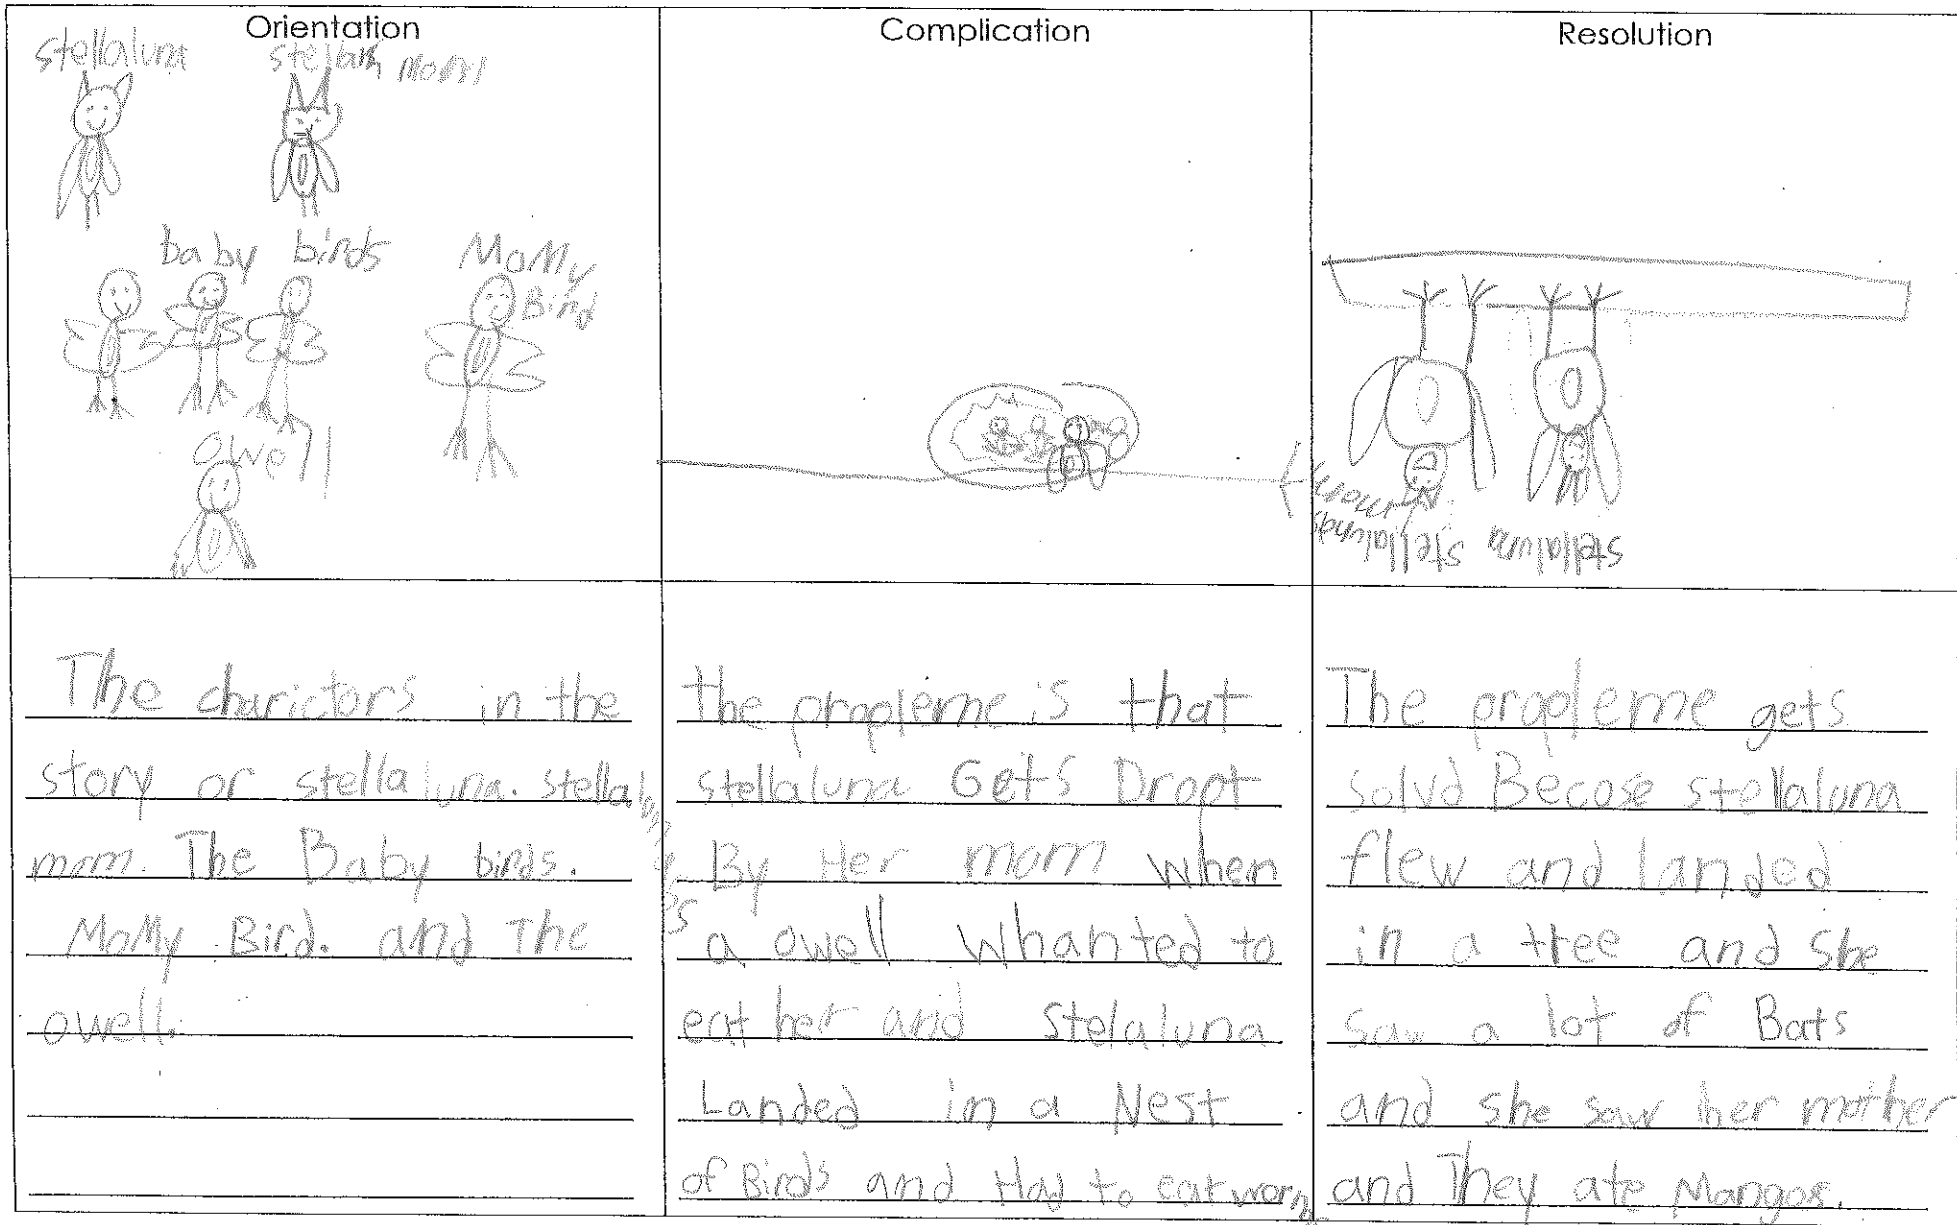 Orientation
stellaluna
mom
baby birds
MoMy
Bird
owell
The charictors in the
story or stellaluna. stellaluna's
mom. The Baby birds.
MoMy Bird. and The
owell.
Complication
the propleme is that
stellaluna Gets Dropt
By Her mom when
a owell Whanted to
eat her and Stelaluna
Landed in a Nest
of Birds and Had to eat worm
Resolution
mom
stellaluna's stellaluna
The propleme gets
solvd Becose stellaluna
flew and landed
in a tree and she
saw a lot of Bats
and she saw her mother
and They ate Mangos.